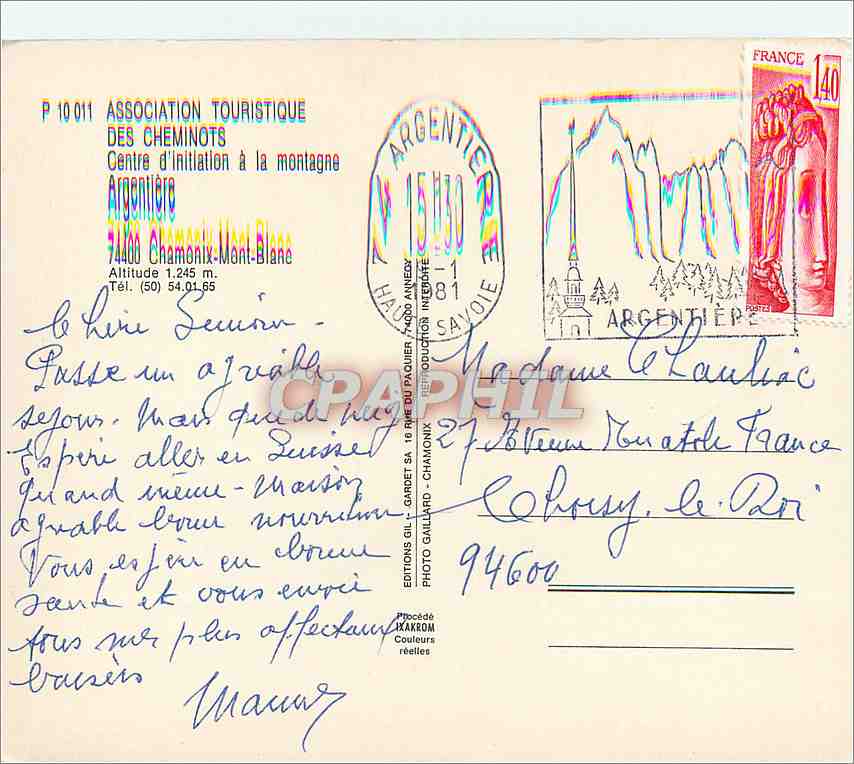 P 10 011 ASSOCIATION TOURISTIQUE
DES CHEMINOTS
Centre d'initiation à la montagne
Argentière
74400 Chamonix-Mont-Blanc
Altitude 1.245 m.
Tél. (50) 54.01.65
Passe un agréable
sejour. Mais que de neige
Espère aller en Suisse
quand même - Maison
agréable bonne nourriture
Vous espère en bonne
santé et vous envoie
tous mes plus affectueux
baisers
ARGENTIERE
15H30
-1
1981
HAUTE SAVOIE
ARGENTIÈRE
FRANCE
1,40
POSTES
EDITIONS GIL - GARDET SA 16 RUE DU PAQUIER 74000 ANNECY
PHOTO GAILLARD - CHAMONIX REPRODUCTION INTERDITE
Procédé
IXAKROM
Couleurs
réelles
Madame Chauliac
27 Avenue Anatole France
Choisy-le-Roi
94600
CPAPHIL